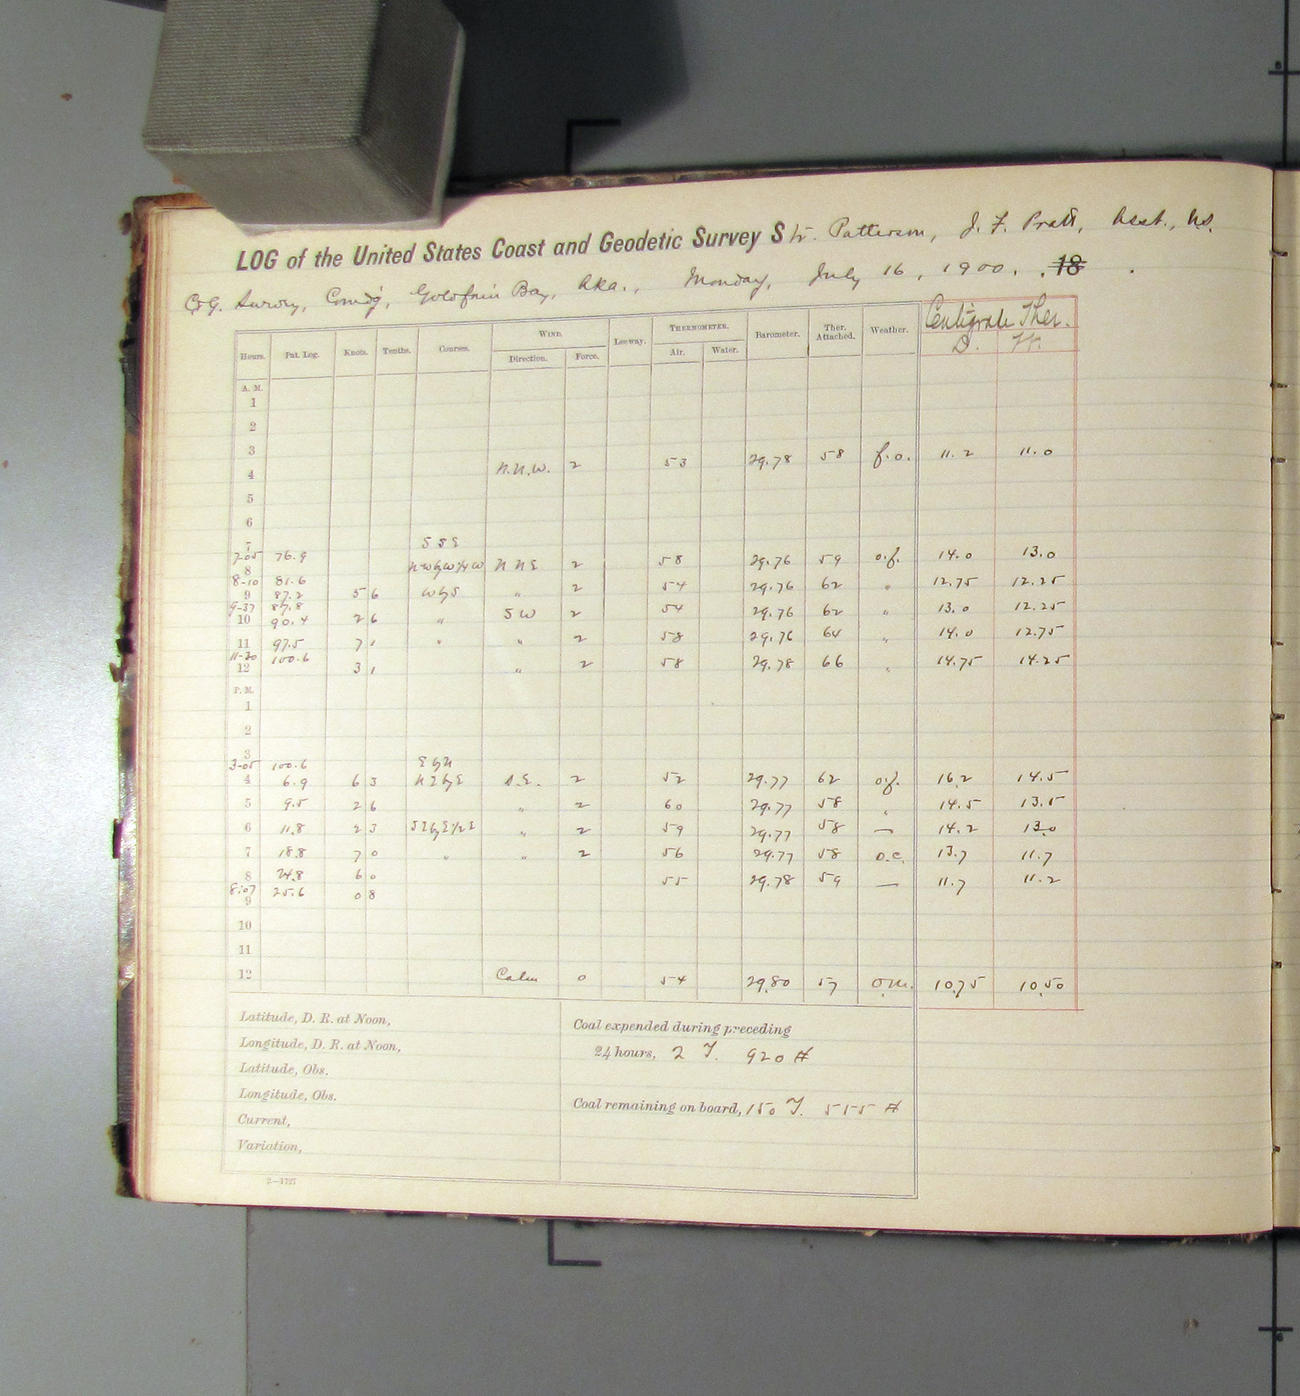 LOG of the United States Coast and Geodetic Survey Str. Patterson, J. F. Pratt, Asst., U.S.
C&G. Survey, Comd'g, Golofnin Bay, Aka., Monday, July 16, 1900. 18
Hours. Pat. Log. Knots. Tenths. Courses. WIND. Direction. Force. Leeway. THERMOMETER. Air. Water. Barometer. Ther. Attached. Weather. Centigrade Ther. D. W.
A. M.
1
2
3
4 N.N.W. 2 53 29.78 58 f.o. 11.2 11.0
5
6
7 S S E
7-05 76.9
8 NWbyW½W NNE 2 58 29.76 59 o.f. 14.0 13.0
8-10 81.6
9 87.2 5 6 WbyS " 2 54 29.76 62 " 12.75 12.25
9-37 87.8
10 90.4 2 6 " SW 2 54 29.76 62 " 13.0 12.25
11 97.5 7 1 " " 2 58 29.76 64 " 14.0 12.75
11-20 100.6
12 3 1 " 2 58 29.78 66 " 14.75 14.25
P. M.
1
2
3
3-05 100.6 EbyN
4 6.9 6 3 NEbyE S.E. 2 52 29.77 62 o.f. 16.2 14.5
5 9.5 2 6 " 2 60 29.77 58 " 14.5 13.5
6 11.8 2 3 SEbyE½E " 2 59 29.77 58 — 14.2 13.0
7 18.8 7 0 " " 2 56 29.77 58 o.c. 13.7 11.7
8 24.8 6 0 55 29.78 59 — 11.7 11.2
8:07 25.6 0 8
9
10
11
12 Calm 0 54 29.80 57 o.m. 10.75 10.50
Latitude, D. R. at Noon,
Longitude, D. R. at Noon,
Latitude, Obs.
Longitude, Obs.
Current,
Variation,
Coal expended during preceding
24 hours, 2 T. 920 #
Coal remaining on board, 150 T. 555 #
2—1727